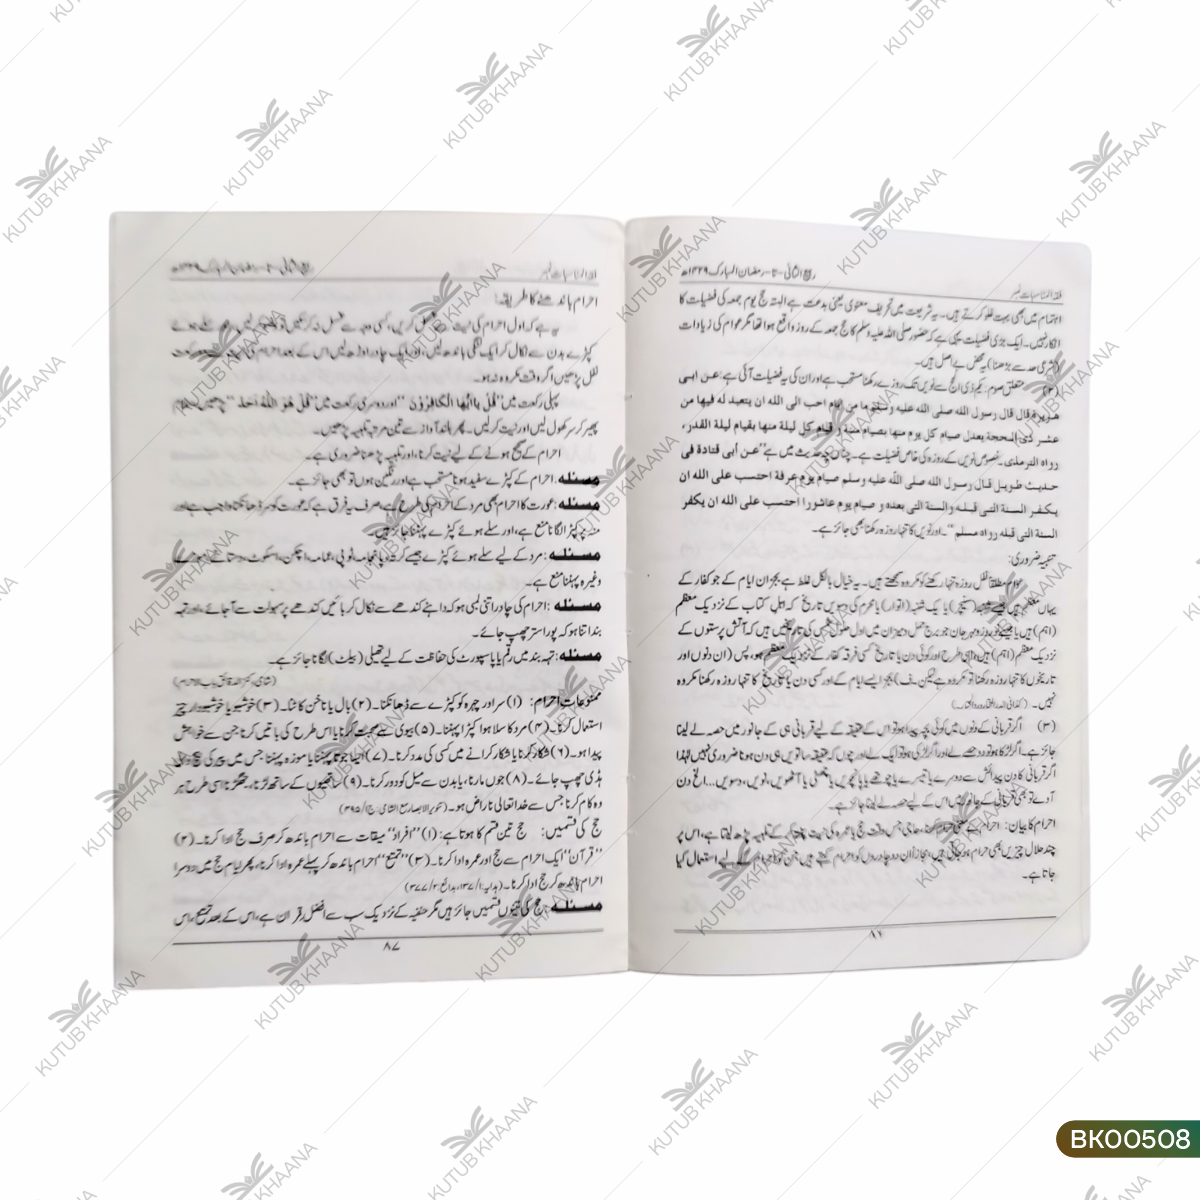 ربیع الثانی - تا - رمضان المبارک ۱۴۲۹ھ
فقہ المناسبات نمبر
اہتمام میں بھی بہت غلو کرتے ہیں۔ یہ شریعت میں تحریف معنوی یعنی بدعت ہے البتہ حج یوم جمعہ کی فضیلت کا
انکار نہیں۔ ایک جزئی فضیلت یہی ہے کہ حضور صلی اللہ علیہ وسلم کا حج جمعہ کے روز واقع ہوا تھا مگر عوام کی زیادات
(شرعی حد سے بڑھنا) یہ محض بے اصل ہیں۔
(۲) متعلق صوم: یکم ذی الحج سے نویں تک روزے رکھنا مستحب ہے اور ان کی یہ فضیلت آئی ہے: عن ابی
هريرة قال قال رسول الله صلى الله عليه وسلم ما من ايام احب الى الله ان يتعبد له فيها من
عشر ذى الحجة يعدل صيام كل يوم منها بصيام سنة و قيام كل ليلة منها بقيام ليلة القدر،
رواه الترمذى۔ خصوص نویں کے روزہ کی خاص فضیلت ہے۔ چناں چہ حدیث میں ہے "عن أبى قتادة فى
حديث طويل قال رسول الله صلى الله عليه وسلم صيام يوم عرفة احتسب على الله ان
يكفر السنة التى قبله والسنة التى بعده و صيام يوم عاشورا احتسب على الله ان يكفر
السنة التى قبله رواه مسلم"۔ اور نویں کا تنہا روزہ رکھنا بھی جائز ہے۔
تنبیہ ضروری:
عوام مطلقاً نفل روزہ تنہا رکھنے کو مکروہ سمجھتے ہیں۔ یہ خیال بالکل غلط ہے بجز ان ایام کے جو کفار کے
یہاں معظم ہیں جیسے شنبہ (سنیچر) یا یک شنبہ (اتوار) یا محرم کی دسویں تاریخ کہ اہل کتاب کے نزدیک معظم
(اہم) ہیں یا جیسے نوروز ومہرجان جو برج حمل و میزان میں اول حلول شمس کی تاریخیں ہیں کہ آتش پرستوں کے
نزدیک معظم (اہم) ہیں و اسی طرح اور کوئی دن یا تاریخ کسی فرقہ کفار کے نزدیک معظم ہو، پس (ان دنوں اور
تاریخوں کا تنہا روزہ رکھنا تو مکروہ ہے لیکن۔ف) بجز ایسے ایام کے اور کسی دن یا تاریخ کا تنہا روزہ رکھنا مکروہ
نہیں۔
(۳) اگر قربانی کے دنوں میں کوئی بچہ پیدا ہو تو اس کے عقیقہ کے لیے قربانی ہی کے جانور میں حصہ لے لینا
جائز ہے۔ اگر لڑکا ہو تو دو حصے لے اور اگر لڑکی ہو تو ایک لے اور چوں کہ عقیقہ ساتویں ہی دن ہونا ضروری نہیں لہٰذا
اگر قربانی کا دن پیدائش سے دوسرے یا تیسرے یا چوتھے یا پانچویں یا چھٹی یا آٹھویں، نویں، دسویں... الخ دن
آوے تو بھی قربانی کے جانور میں اس کے لیے حصہ لے لینا جائز ہے۔
احرام کا بیان: احرام کے معنی حرام کرنا، حاجی جس وقت حج یا عمرہ کی نیت پختہ کر کے تلبیہ پڑھ لیتا ہے، اس پر
چند حلال چیزیں بھی حرام ہو جاتی ہیں، مجازاً ان دو چادروں کو احرام کہتے ہیں جن کو احرام کے لیے استعمال کیا
جاتا ہے۔
۸۶
فقہ المناسبات نمبر
ربیع الثانی - تا - رمضان المبارک ۱۴۲۹ھ
احرام باندھنے کا طریقہ:
یہ ہے کہ اول احرام کی نیت سے غسل کریں، کسی وجہ سے غسل نہ کر سکیں تو وضو کر لیں۔ پھر سلے ہوئے
کپڑے بدن سے نکال کر ایک لنگی باندھ لیں، اور ایک چادر اوڑھ لیں اس کے بعد احرام کی نیت سے دو رکعت
نفل پڑھیں اگر وقت مکروہ نہ ہو۔
پہلی رکعت میں "قُلْ یٰاَیُّهَا الْکَافِرُوْنَ" اور دوسری رکعت میں "قُلْ هُوَ اللّٰهُ اَحَد" پڑھیں
پھیر کر سر کھول لیں اور نیت کر لیں۔ پھر بلند آواز سے تین مرتبہ تلبیہ پڑھیں۔
احرام کے صحیح ہونے کے لیے نیت کرنا، اور تلبیہ پڑھنا ضروری ہے۔
مسئلہ: احرام کے کپڑے سفید ہونا مستحب ہے اور رنگین ہوں تو بھی جائز ہے۔
مسئلہ: عورت کا احرام بھی مرد کے احرام کی طرح ہے، صرف یہ فرق ہے کہ عورت کو سر ڈھانکنا واجب ہے اور
منہ پر کپڑا لگانا منع ہے، اور سلے ہوئے کپڑے پہننا جائز ہیں۔
مسئلہ: مرد کے لیے سلے ہوئے کپڑے جیسے کرتہ، پائجامہ، ٹوپی، عمامہ، اچکن، اسکوٹ، دستانے، موزے
وغیرہ پہننا منع ہے۔
مسئلہ: احرام کی چادر اتنی لمبی ہو کہ داہنے کندھے سے نکال کر بائیں کندھے پر سہولت سے آ جائے، اور تہہ
بند اتنا ہو کہ پورا ستر چھپ جائے۔
مسئلہ: تہہ بند میں رقم یا پاسپورٹ کی حفاظت کے لیے تھیلی (بیلٹ) لگانا جائز ہے۔
ممنوعات احرام: (۱) سر اور چہرہ کو کپڑے سے ڈھانکنا۔ (۲) بال یا ناخن کاٹنا۔ (۳) خوشبو یا خوشبودار چیز
استعمال کرنا۔ (۴) مرد کا سلا ہوا کپڑا پہننا۔ (۵) بیوی سے صحبت کرنا یا اس طرح کی باتیں کرنا جن سے خواہش
پیدا ہو۔ (۶) شکار کرنا یا شکار کرانے میں کسی کی مدد کرنا۔ (۷) ایسا جوتا پہننا یا موزہ پہننا جس میں پیر کی بیچ والی
ہڈی چھپ جائے۔ (۸) جوں مارنا، یا بدن سے میل کو دور کرنا۔ (۹) ساتھیوں کے ساتھ لڑنا، جھگڑنا اسی طرح ہر
وہ کام کرنا جس سے خدا تعالیٰ ناراض ہو۔ (تنویر الابصار مع الشامی: ج۱/ ۳۹۵)
حج کی قسمیں: حج تین قسم کا ہوتا ہے: (۱) "افراد" میقات سے احرام باندھ کر صرف حج ادا کرنا۔ (۲)
"قرآن" ایک احرام سے حج اور عمرہ ادا کرنا۔ (۳) "تمتع" احرام باندھ کر پہلے عمرہ ادا کرنا، پھر ایام حج میں دوسرا
احرام باندھ کر حج ادا کرنا۔ (ہدایہ: ۱۳۷/۱، بدائع: ۳۷۷/۲)
مسئلہ: حج کی تینوں قسمیں جائز ہیں مگر حنفیہ کے نزدیک سب سے افضل قران ہے، اس کے بعد تمتع، اس
۸۷
KUTUB KHAANA
BK00508